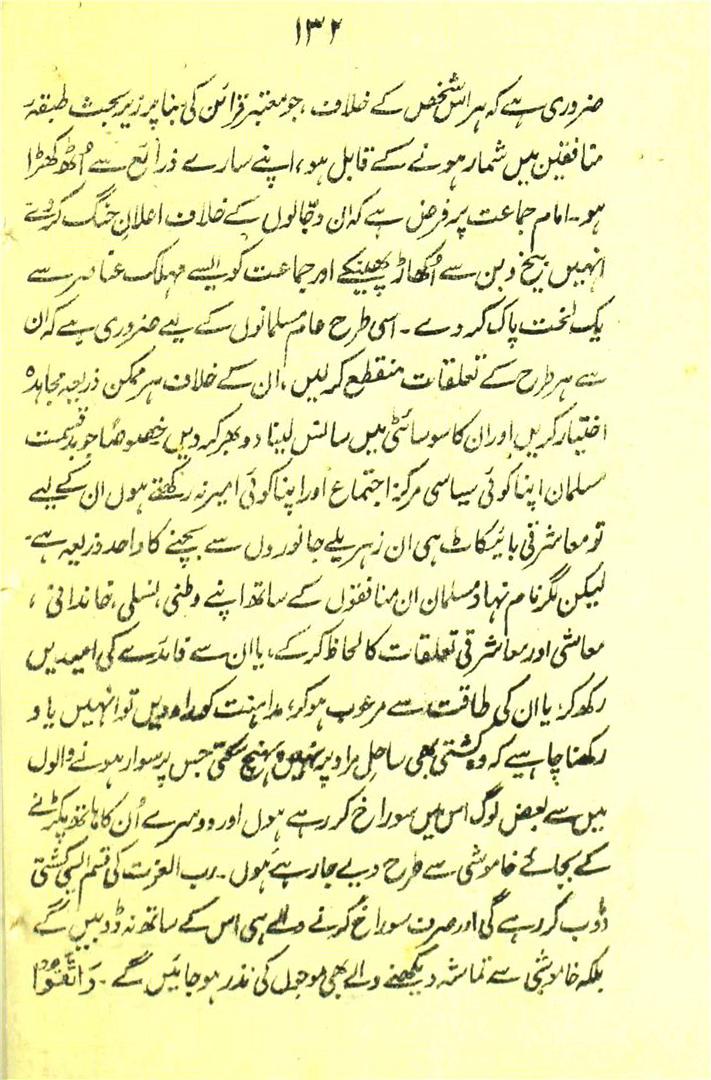 ۱۳۲
ضروری ہے کہ ہر اس شخص کے خلاف، جو معتبر قرائن کی بنا پر زیر بحث طبقۂ
منافقین میں شمار ہونے کے قابل ہو، اپنے سارے ذرائع سے اُٹھ کھڑا
ہو۔ امام جماعت پر فرض ہے کہ ان دجّالوں کے خلاف اعلانِ جنگ کر کے
انہیں بیخ و بن سے اُکھاڑ پھینکے اور جماعت کو ایسے مہلک عناصر سے
یک لخت پاک کر دے۔ اسی طرح عام مسلمانوں کے لیے ضروری ہے کہ ان
سے ہر طرح کے تعلقات منقطع کر لیں، ان کے خلاف ہر ممکن ذریعہ مجاہدہ
اختیار کریں اور ان کا سوسائٹی میں سانس لینا دوبھر کر دیں خصوصًا جو بد قسمت
مسلمان اپنا کوئی سیاسی مرکز اجتماع اور اپنا کوئی امیر نہ رکھتے ہوں ان کے لیے
تو معاشرتی بائیکاٹ ہی ان زہریلے جانوروں سے بچنے کا واحد ذریعہ ہے۔
لیکن اگر نام نہاد مسلمان ان منافقوں کے ساتھ اپنے وطنی، نسلی، خاندانی،
معاشی اور معاشرتی تعلقات کا لحاظ کر کے، یا ان سے فائدے کی امیدیں
رکھ کر، یا ان کی طاقت سے مرعوب ہو کر، مداہنت کو راہ دیں تو انہیں یاد
رکھنا چاہیے کہ وہ کشتی کبھی ساحل مراد پر نہیں پہنچ سکتی جس پر سوار ہونے والوں
میں سے بعض لوگ اس میں سوراخ کر رہے ہوں اور دوسرے اُن کا ہاتھ پکڑنے
کے بجائے خاموشی سے طرح دیے جا رہے ہوں۔ رب العزت کی قسم ایسی کشتی
ڈوب کر رہے گی اور صرف سوراخ کرنے والے ہی اس کے ساتھ نہ ڈوبیں گے
بلکہ خاموشی سے تماشہ دیکھنے والے بھی موجوں کی نذر ہو جائیں گے۔ وَاتَّقُوْا